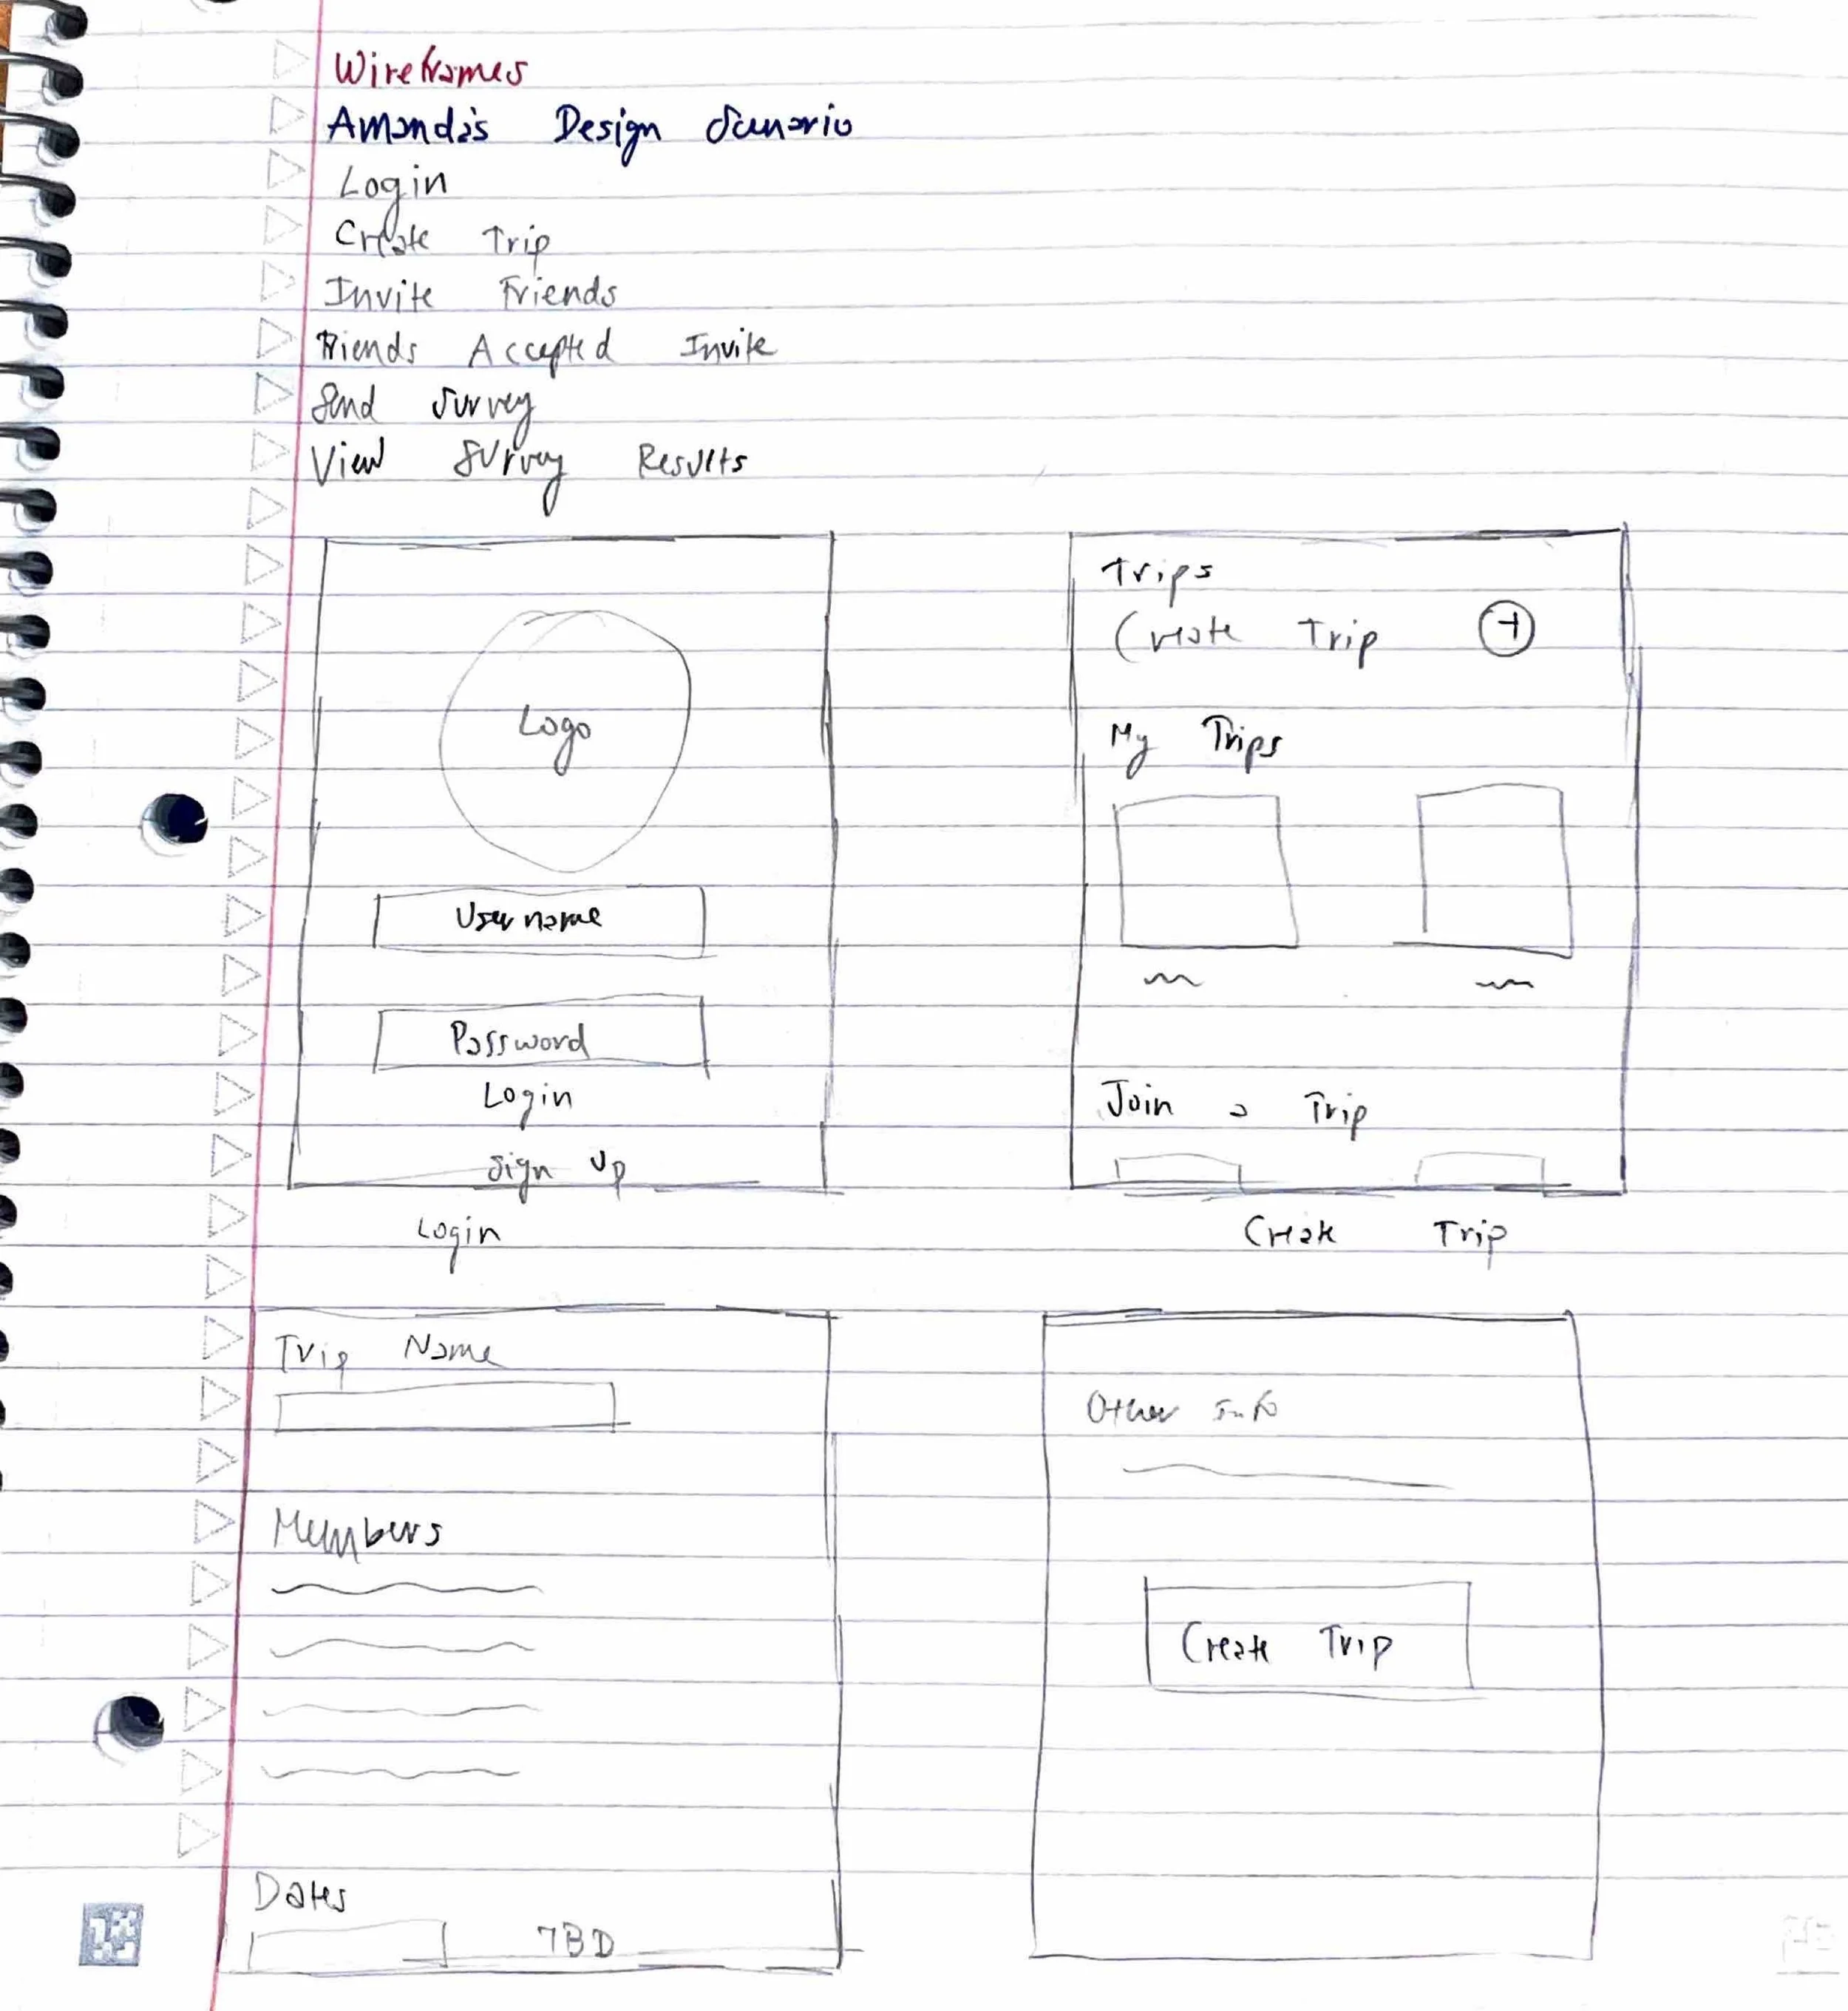 Wireframes
Amanda's Design Scenario
Login
Create Trip
Invite Friends
Friends Accepted Invite
Send Survey
View Survey Results
Logo
Username
Password
Login
Sign Up
Login
Trips
Create Trip +
My Trips
Join a Trip
Create Trip
Trip Name
Members
Dates
TBD
Other Info
Create Trip